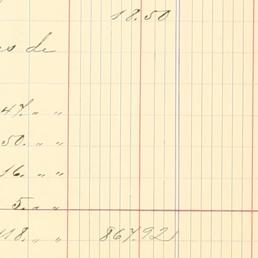 18.50
es de
47. " "
50. " "
16. " "
5. " "
118. " " 867.92